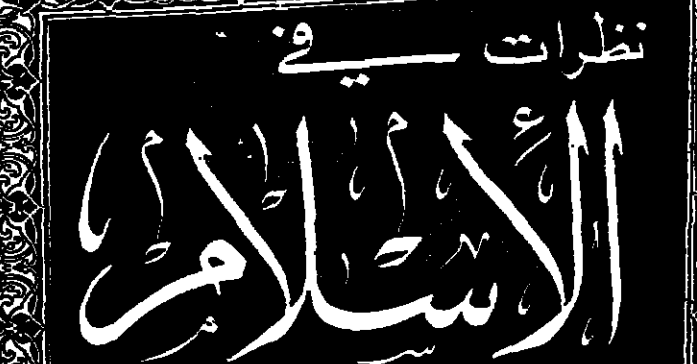 نظرات في
الإسلام